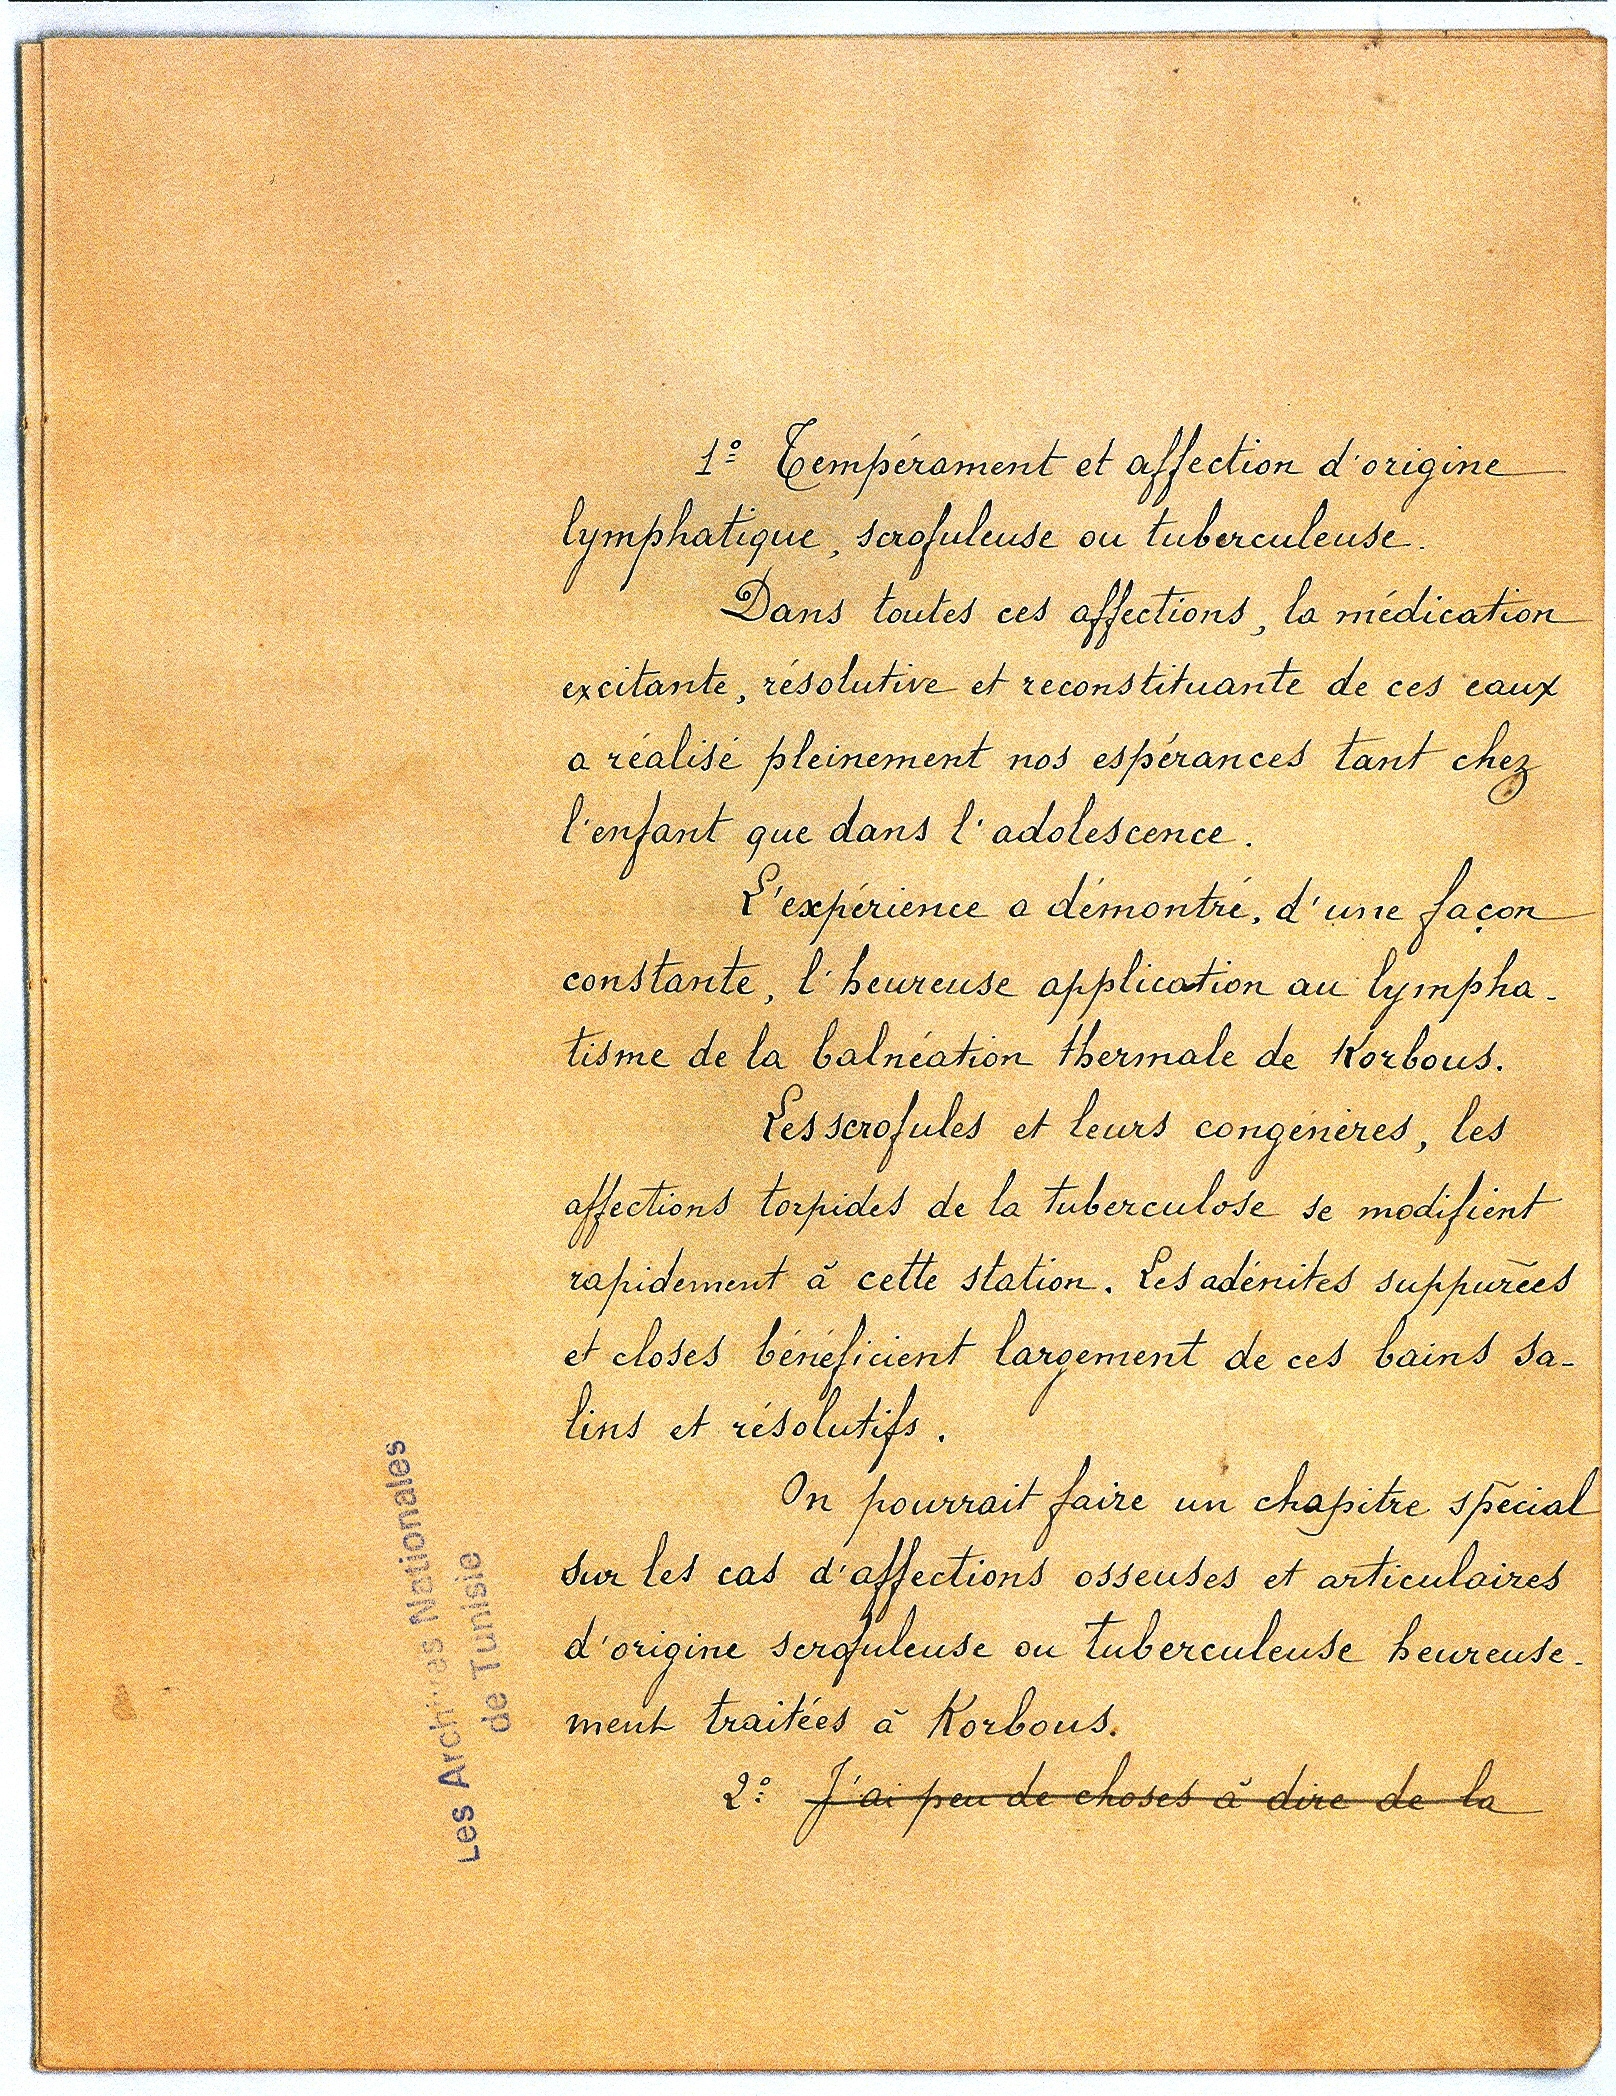 1º Tempérament et affection d'origine
lymphatique, scrofuleuse ou tuberculeuse.
Dans toutes ces affections, la médication
excitante, résolutive et reconstituante de ces eaux
a réalisé pleinement nos espérances tant chez
l'enfant que dans l'adolescence.
L'expérience a démontré, d'une façon
constante, l'heureuse application au lympha-
tisme de la balnéation thermale de Korbous.
Les scrofules et leurs congénères, les
affections torpides de la tuberculose se modifient
rapidement à cette station. Les adénites suppurées
et closes bénéficient largement de ces bains sa-
lins et résolutifs.
On pourrait faire un chapitre spécial
sur les cas d'affections osseuses et articulaires
d'origine scrofuleuse ou tuberculeuse heureuse-
ment traitées à Korbous.
2º J'ai peu de choses à dire de la
Les Archives Nationales
de Tunisie